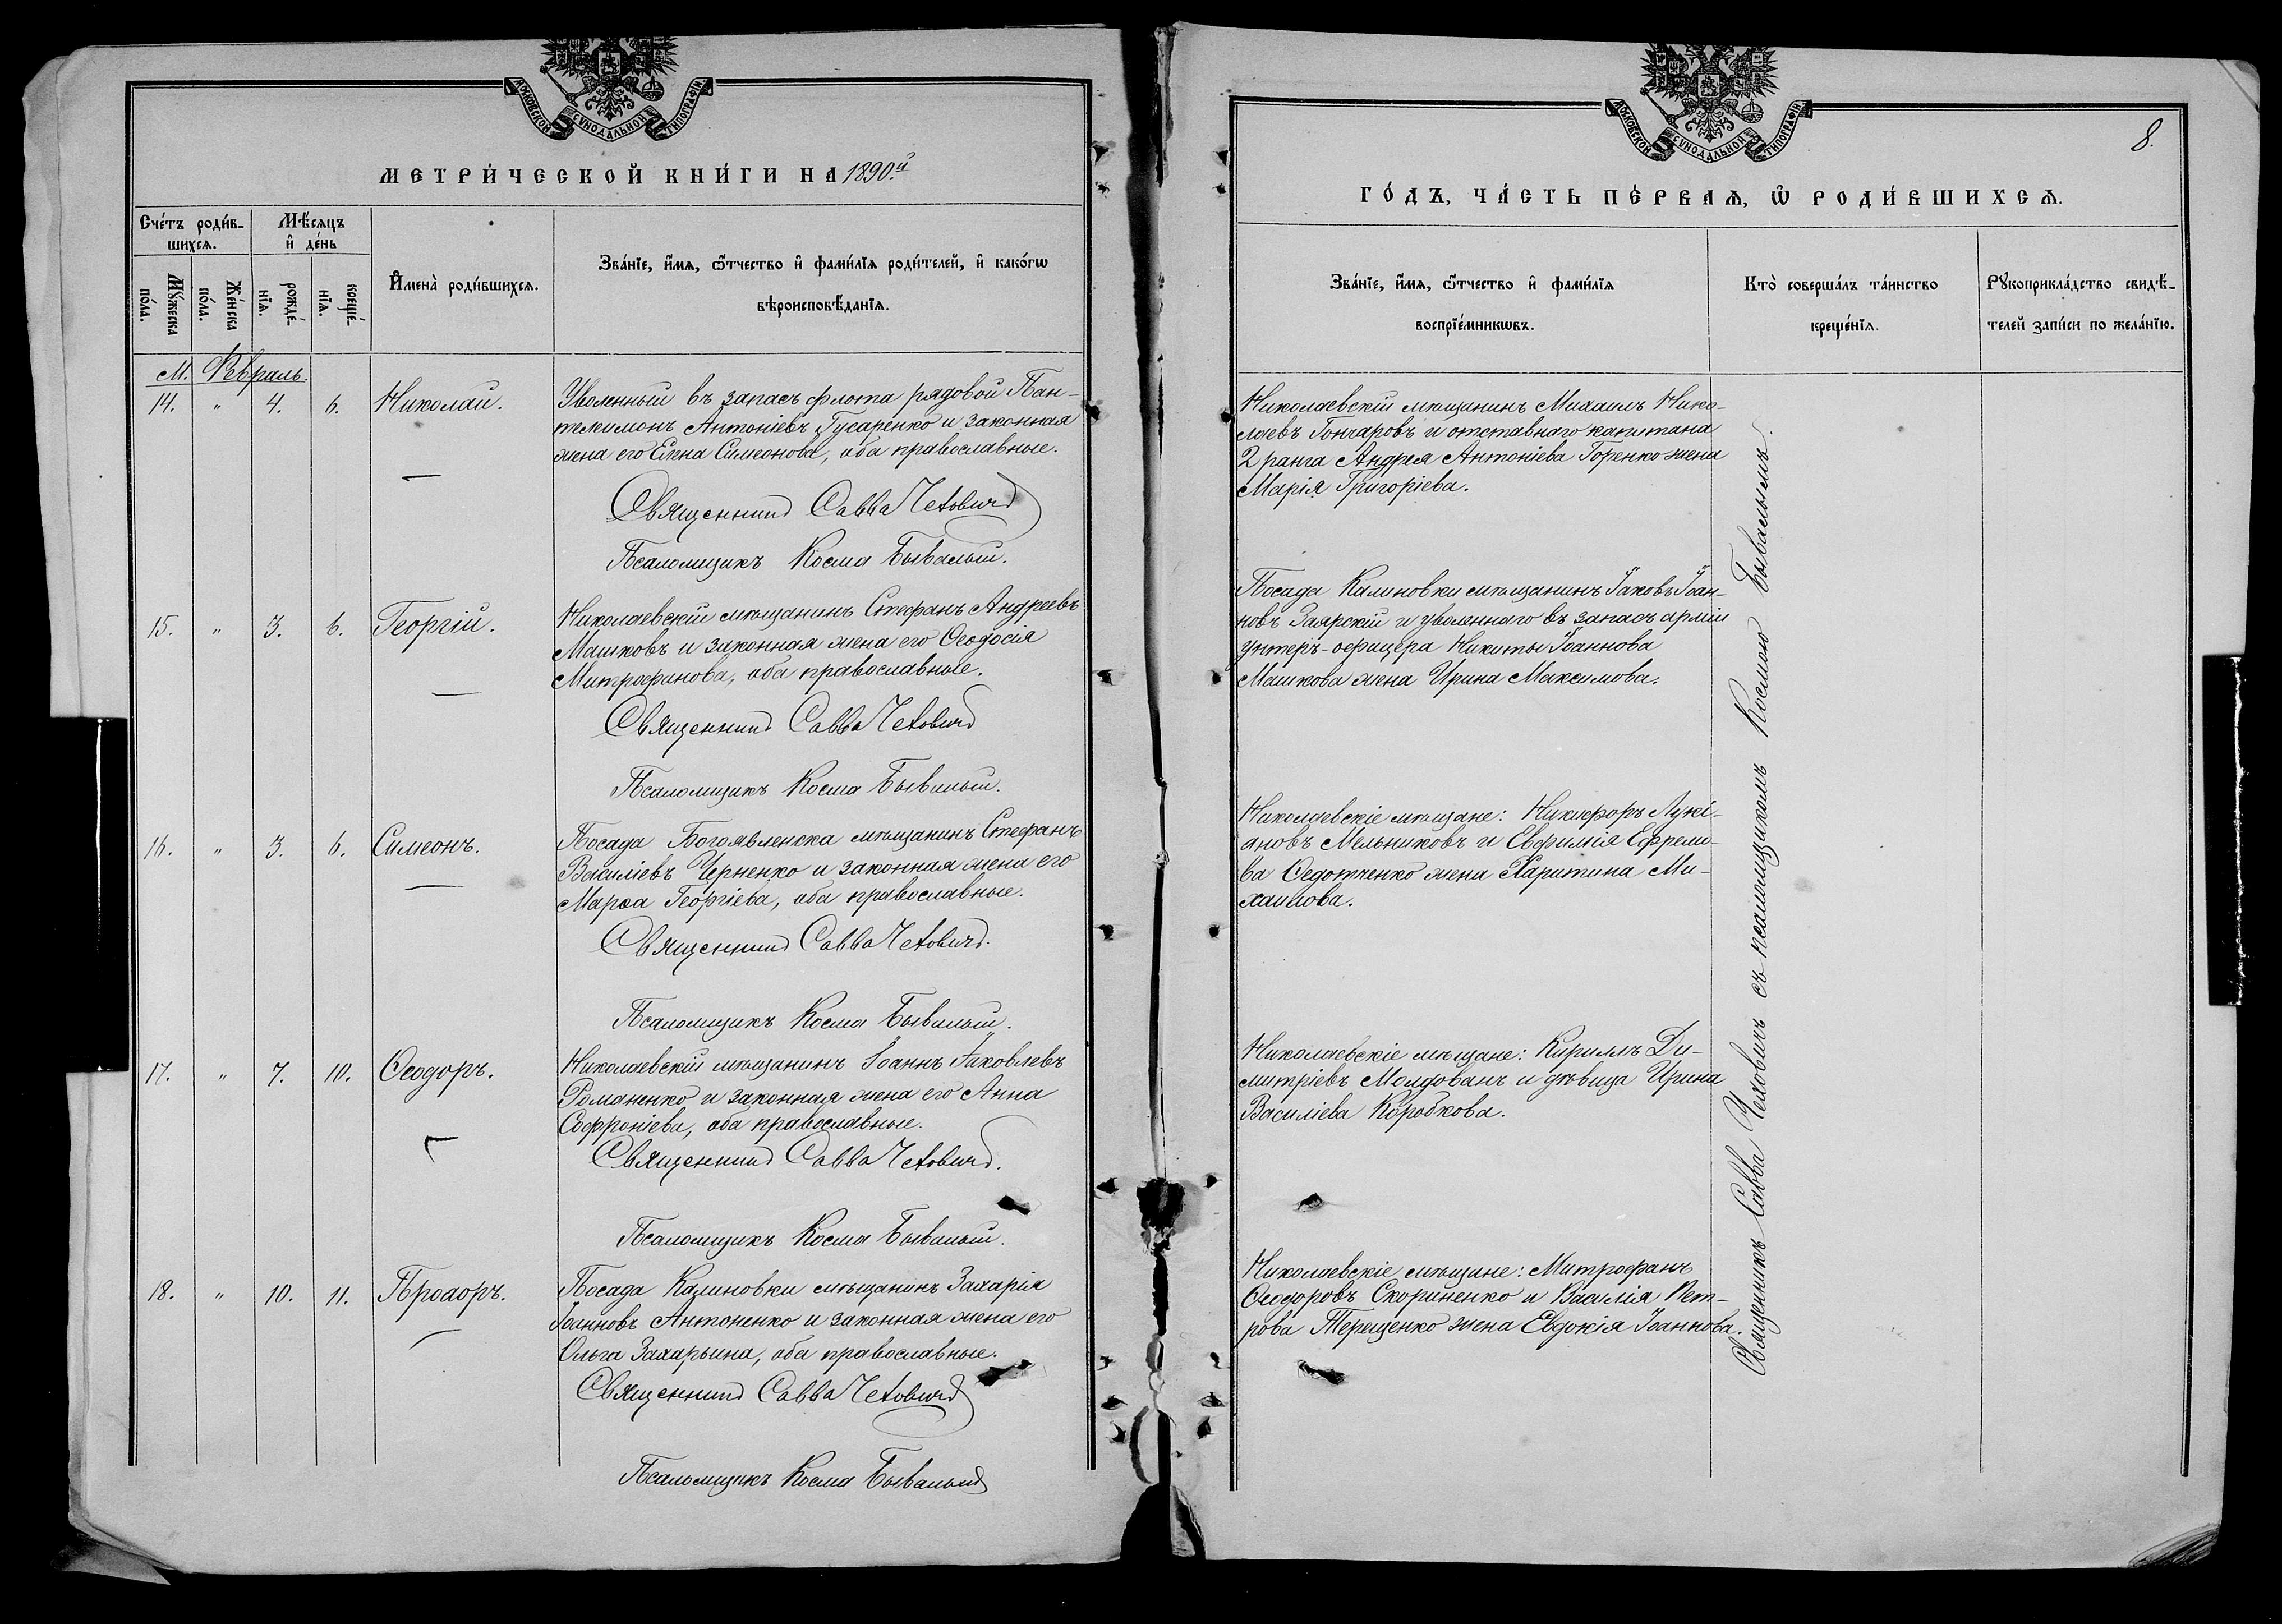 МОСКОВСКОЙ СѴНОДАЛЬНОЙ ТИПОГРАФІИ.
МЕТРИ́ЧЕСКОЙ КНИ́ГИ НА 1890.й
Сче́тъ роди́в-
шихсѧ.
Мѣ́сѧцъ
и҆ де́нь
Мꙋ́жеска
по́ла.
Же́нска
по́ла.
рожде́-
нїѧ.
креще́-
нїѧ.
И҆мена̀ роди́вшихсѧ.
Зва́нїе, и҆́мѧ, ѻ҆́тчество и҆ фами́лїѧ роди́телей, и҆ како́гѡ
вѣроисповѣ́данїѧ.
М. Февраль.
14. " 4. 6. Николай.
Уволенный въ запасъ флота рядовой Пан-
телимонъ Антоніевъ Гусаренко и законная
жена его Елена Симеонова, оба православные.
Священникъ Савва Чеховичъ
Псаломщикъ Косма Бывалый.
15. " 3. 6. Георгій.
Николаевскій мѣщанинъ Стефанъ Андреевъ
Машковъ и законная жена его Ѳеодосія
Митрофанова, оба православные.
Священникъ Савва Чеховичъ
Псаломщикъ Косма Бывалый.
16. " 3. 6. Симеонъ.
Посада Богоявленска мѣщанинъ Стефанъ
Василіевъ Черненко и законная жена его
Марѳа Георгіева, оба православные.
Священникъ Савва Чеховичъ.
Псаломщикъ Косма Бывалый.
17. " 7. 10. Ѳеодоръ.
Николаевскій мѣщанинъ Іоаннъ Іаковлевъ
Романенко и законная жена его Анна
Софроніева, оба православные.
Священникъ Савва Чеховичъ.
Псаломщикъ Косма Бывалый.
18. " 10. 11. Прохоръ.
Посада Калиновки мѣщанинъ Захарія
Іоанновъ Антоненко и законная жена его
Ольга Захарьина, оба православные.
Священникъ Савва Чеховичъ
Псаломщикъ Косма Бывалый
МОСКОВСКОЙ СѴНОДАЛЬНОЙ ТИПОГРАФІИ.
8.
ГО́ДЪ, ЧА́СТЬ ПЕ́РВАѦ, Ѡ҆ РОДИ́ВШИХСѦ.
Зва́нїе, и҆́мѧ, ѻ҆́тчество и҆ фами́лїѧ
воспрїе́мникѡвъ.
Кто̀ соверша́лъ та́инство
креще́нїѧ.
Рꙋкоприкла́дство свидѣ́-
телей за́писи по жела́нїю.
Николаевскій мѣщанинъ Михаилъ Нико-
лаевъ Гончаровъ и отставнаго капитана
2 ранга Андрея Антоніева Горенко жена
Марія Григоріева.
Посада Калиновки мѣщанинъ Іаковъ Іоан-
новъ Заярскій и уволеннаго въ запасъ арміи
унтеръ-офицера Никиты Іоаннова
Машкова жена Ирина Максимова.
Николаевскіе мѣщане: Никифоръ Лукі-
ановъ Мельниковъ и Евфимія Ефремо-
ва Ѳедотченко жена Харитина Ми-
хаилова.
Николаевскіе мѣщане: Кириллъ Ди-
митріевъ Молдованъ и дѣвица Ирина
Василіева Коробкова.
Николаевскіе мѣщане: Митрофанъ
Ѳеодоровъ Скориненко и Василія Пет-
рова Терещенко жена Евдокія Іоаннова.
Священникъ Савва Чеховичъ съ псаломщикомъ Космою Бывалымъ.